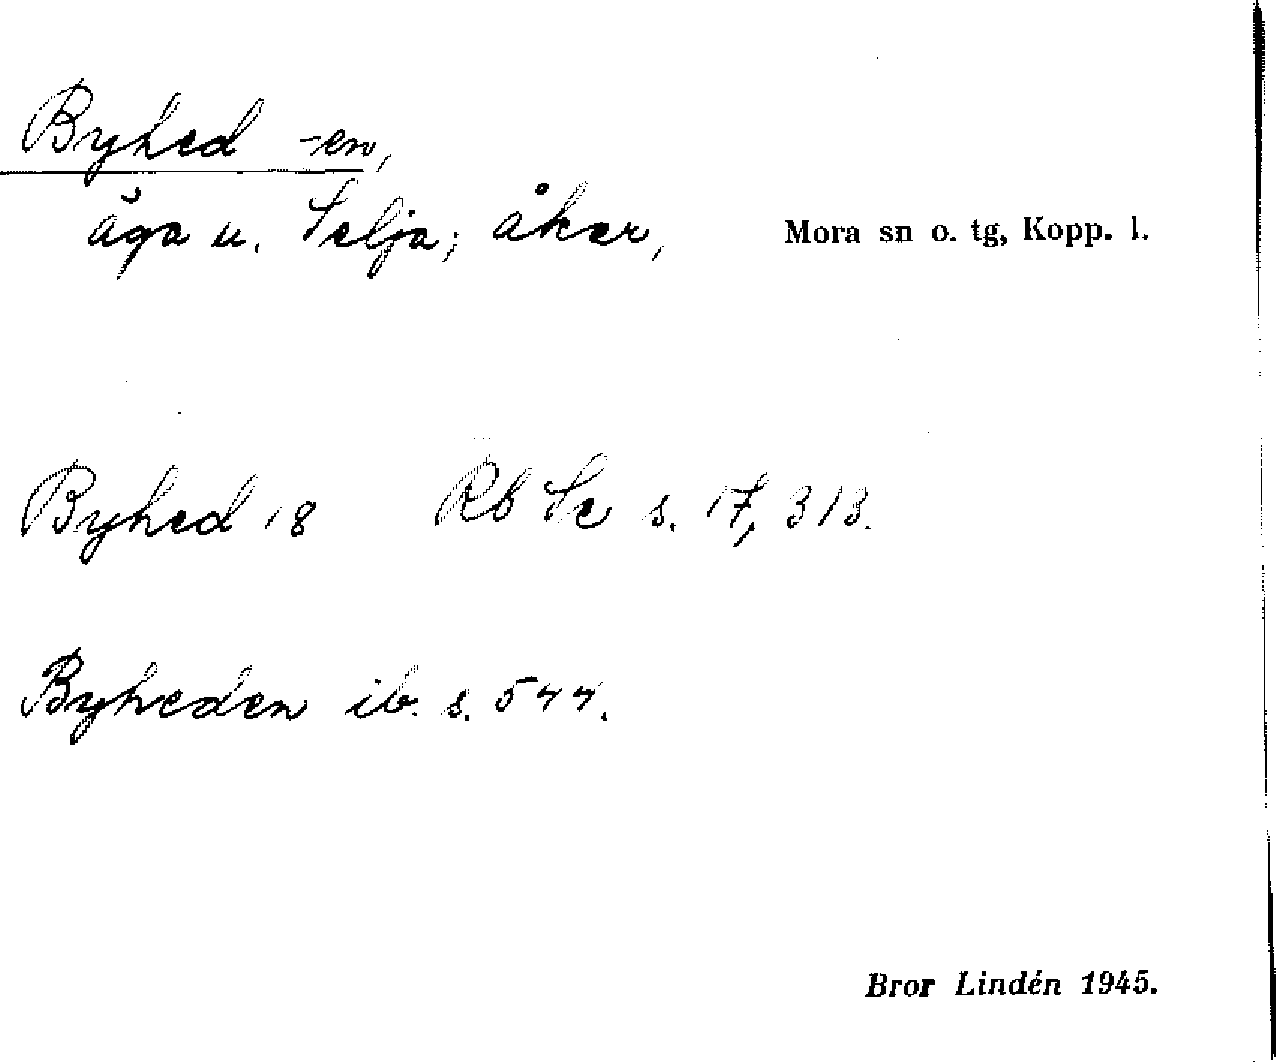 Byhed -en,
äga u. Selja; åker, Mora sn o. tg, Kopp. l.
Byhed 18 Rb Se s. 17, 313.
Byheden ib. s. 544.
Bror Lindén 1945.